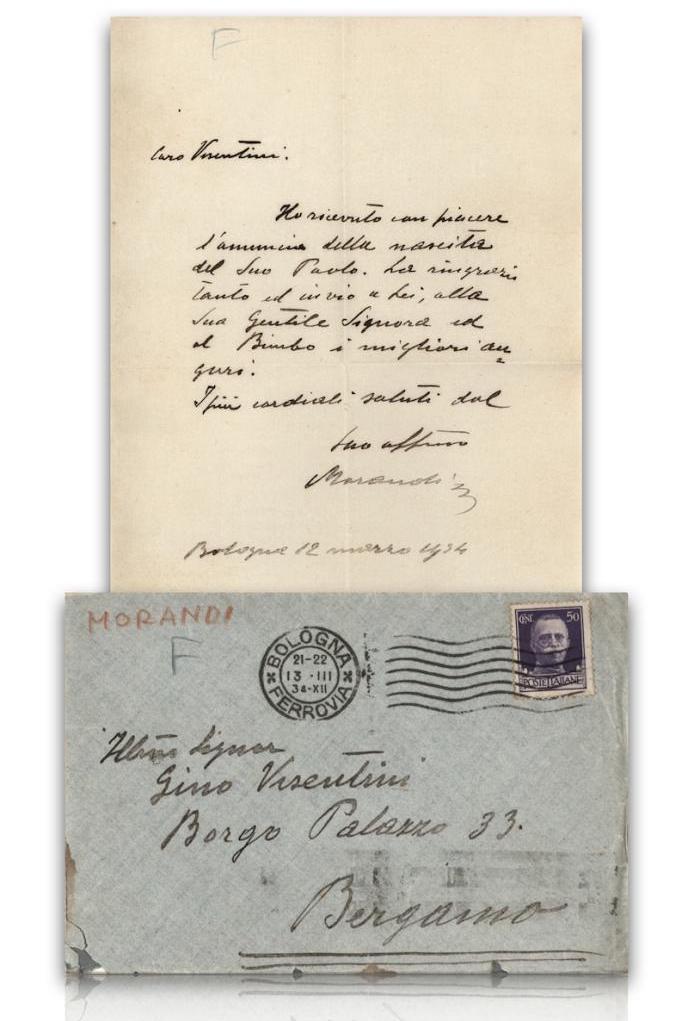 F
Caro Visentini.
Ho ricevuto con piacere
l'annuncio della nascita
del Suo Paolo. La ringrazio
tanto ed invio a Lei, alla
Sua Gentile Signora ed
al Bimbo i migliori au=
guri.
I più cordiali saluti dal
Suo affmo
Morandi
Bologna 12 marzo 1934
MORANDI
F
BOLOGNA
21-22
13 · III
34-XII
FERROVIA
CENT. 50
POSTE ITALIANE
Illmo Signor
Gino Visentini
Borgo Palazzo 33.
Bergamo